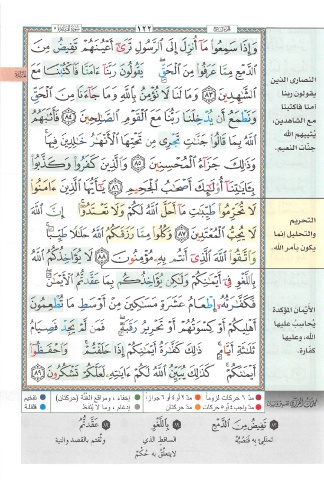 ١٢٢
وَإِذَا سَمِعُوا۟ مَآ أُنزِلَ إِلَى ٱلرَّسُولِ تَرَىٰٓ أَعْيُنَهُمْ تَفِيضُ مِنَ
ٱلدَّمْعِ مِمَّا عَرَفُوا۟ مِنَ ٱلْحَقِّ ۖ يَقُولُونَ رَبَّنَآ ءَامَنَّا فَٱكْتُبْنَا مَعَ
ٱلشَّٰهِدِينَ ٨٣ وَمَا لَنَا لَا نُؤْمِنُ بِٱللَّهِ وَمَا جَآءَنَا مِنَ ٱلْحَقِّ
وَنَطْمَعُ أَن يُدْخِلَنَا رَبُّنَا مَعَ ٱلْقَوْمِ ٱلصَّٰلِحِينَ ٨٤ فَأَثَٰبَهُمُ
ٱللَّهُ بِمَا قَالُوا۟ جَنَّٰتٍ تَجْرِى مِن تَحْتِهَا ٱلْأَنْهَٰرُ خَٰلِدِينَ فِيهَا ۚ
وَذَٰلِكَ جَزَآءُ ٱلْمُحْسِنِينَ ٨٥ وَٱلَّذِينَ كَفَرُوا۟ وَكَذَّبُوا۟
بِـَٔايَٰتِنَآ أُو۟لَٰٓئِكَ أَصْحَٰبُ ٱلْجَحِيمِ ٨٦ يَٰٓأَيُّهَا ٱلَّذِينَ ءَامَنُوا۟
لَا تُحَرِّمُوا۟ طَيِّبَٰتِ مَآ أَحَلَّ ٱللَّهُ لَكُمْ وَلَا تَعْتَدُوٓا۟ ۚ إِنَّ ٱللَّهَ
لَا يُحِبُّ ٱلْمُعْتَدِينَ ٨٧ وَكُلُوا۟ مِمَّا رَزَقَكُمُ ٱللَّهُ حَلَٰلًا طَيِّبًا ۚ
وَٱتَّقُوا۟ ٱللَّهَ ٱلَّذِىٓ أَنتُم بِهِۦ مُؤْمِنُونَ ٨٨ لَا يُؤَاخِذُكُمُ ٱللَّهُ
بِٱللَّغْوِ فِىٓ أَيْمَٰنِكُمْ وَلَٰكِن يُؤَاخِذُكُم بِمَا عَقَّدتُّمُ ٱلْأَيْمَٰنَ ۖ
فَكَفَّٰرَتُهُۥٓ إِطْعَامُ عَشَرَةِ مَسَٰكِينَ مِنْ أَوْسَطِ مَا تُطْعِمُونَ
أَهْلِيكُمْ أَوْ كِسْوَتُهُمْ أَوْ تَحْرِيرُ رَقَبَةٍ ۖ فَمَن لَّمْ يَجِدْ فَصِيَامُ
ثَلَٰثَةِ أَيَّامٍ ۚ ذَٰلِكَ كَفَّٰرَةُ أَيْمَٰنِكُمْ إِذَا حَلَفْتُمْ ۚ وَٱحْفَظُوٓا۟
أَيْمَٰنَكُمْ ۚ كَذَٰلِكَ يُبَيِّنُ ٱللَّهُ لَكُمْ ءَايَٰتِهِۦ لَعَلَّكُمْ تَشْكُرُونَ ٨٩
النصارى الذين
يقولون ربنا
آمنا فاكتبنا
مع الشاهدين،
يُثيبهم الله
جنات النعيم.
التحريم
والتحليل إنما
يكون بأمر الله.
الأيْمان المؤكدة
يُحاسبُ عليها
الله، وعليها
كفارة.
مد ٦ حركات لزوماً مد ٢ أو ٤ أو ٦ جوازاً إخفاء، ومواقع الغُنَّة (حركتان) تفخيم
مد واجب ٤ أو ٥ حركات مد حركتان إدغام، وما لا يُلفَظ قلقلة
تَفِيضُ مِنَ الدَّمْعِ
تمتلئ به فتصبّه
بِاللَّغْوِ
الساقط الذي
لا يتعلّق به حُكْم
عَقَّدتُّمُ
وثّقتم بالقصد والنية